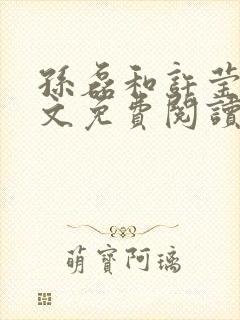 孫磊和許莹
文免費閱讀
萌寶阿璃